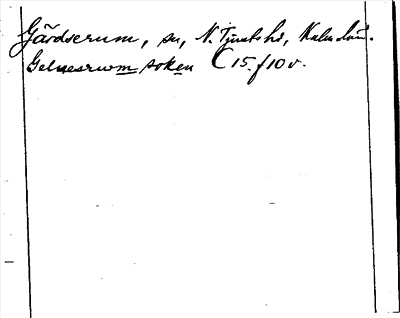 Gärdserum, sn, N. Tjusts hd, Kalm. län.
Gelnesrwm soken C 15. f 10 v.